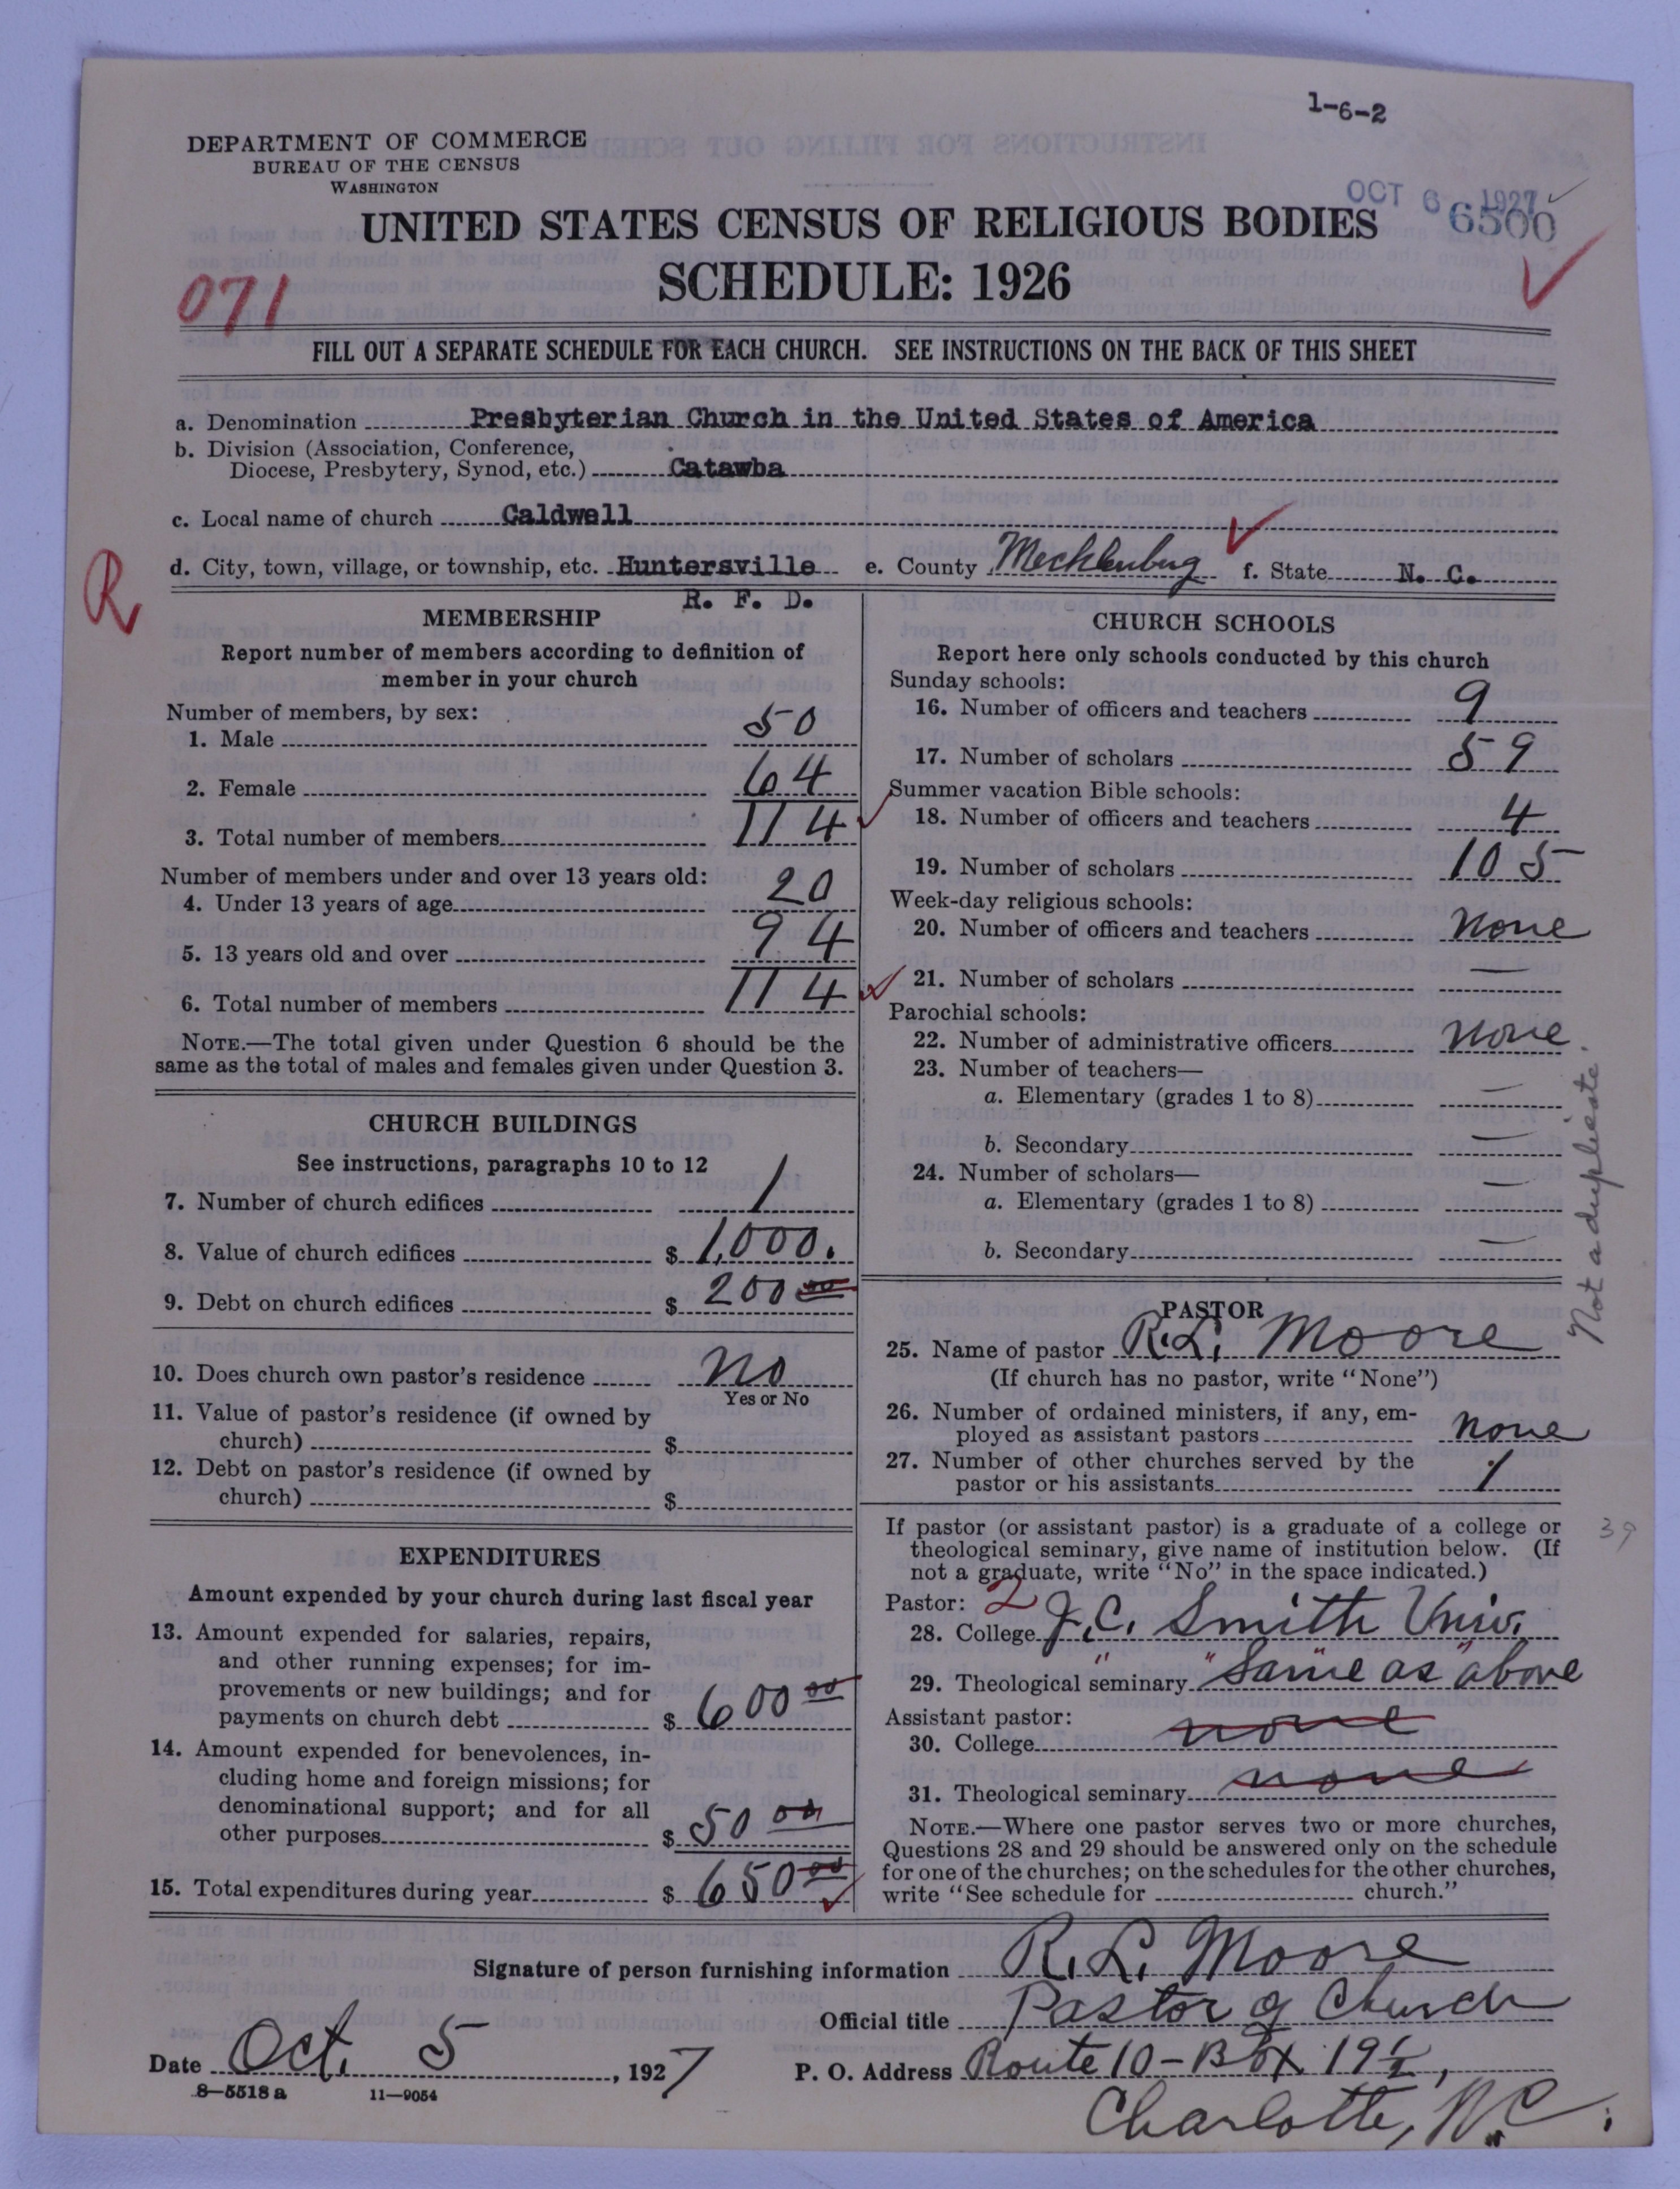 1-6-2
DEPARTMENT OF COMMERCE
BUREAU OF THE CENSUS
WASHINGTON
OCT 6 1927
6500
UNITED STATES CENSUS OF RELIGIOUS BODIES
SCHEDULE: 1926
071
FILL OUT A SEPARATE SCHEDULE FOR EACH CHURCH. SEE INSTRUCTIONS ON THE BACK OF THIS SHEET
a. Denomination Presbyterian Church in the United States of America
b. Division (Association, Conference,
Diocese, Presbytery, Synod, etc.) Catawba
c. Local name of church Caldwell
d. City, town, village, or township, etc. Huntersville e. County Mecklenburg f. State N. C.
R. F. D.
R
MEMBERSHIP
Report number of members according to definition of
member in your church
Number of members, by sex:
1. Male 50
2. Female 64
3. Total number of members 114
Number of members under and over 13 years old:
4. Under 13 years of age 20
5. 13 years old and over 94
6. Total number of members 114
NOTE.—The total given under Question 6 should be the
same as the total of males and females given under Question 3.
CHURCH BUILDINGS
See instructions, paragraphs 10 to 12
7. Number of church edifices 1
8. Value of church edifices $ 1,000.
9. Debt on church edifices $ 200 00
10. Does church own pastor's residence No
Yes or No
11. Value of pastor's residence (if owned by
church) $
12. Debt on pastor's residence (if owned by
church) $
EXPENDITURES
Amount expended by your church during last fiscal year
13. Amount expended for salaries, repairs,
and other running expenses; for im-
provements or new buildings; and for
payments on church debt $ 600 00
14. Amount expended for benevolences, in-
cluding home and foreign missions; for
denominational support; and for all
other purposes $ 50 00
15. Total expenditures during year $ 650 00
CHURCH SCHOOLS
Report here only schools conducted by this church
Sunday schools:
16. Number of officers and teachers 9
17. Number of scholars 59
Summer vacation Bible schools:
18. Number of officers and teachers 4
19. Number of scholars 105
Week-day religious schools:
20. Number of officers and teachers none
21. Number of scholars —
Parochial schools:
22. Number of administrative officers none
23. Number of teachers—
a. Elementary (grades 1 to 8) —
b. Secondary —
24. Number of scholars—
a. Elementary (grades 1 to 8) —
b. Secondary —
Not a duplicate.
PASTOR
25. Name of pastor R.L. Moore
(If church has no pastor, write "None")
26. Number of ordained ministers, if any, em-
ployed as assistant pastors none
27. Number of other churches served by the
pastor or his assistants 1
If pastor (or assistant pastor) is a graduate of a college or
theological seminary, give name of institution below. (If
not a graduate, write "No" in the space indicated.)
39
Pastor: 2
28. College J.C. Smith Univ.
29. Theological seminary "Same as" above
Assistant pastor:
30. College none
31. Theological seminary none
NOTE.—Where one pastor serves two or more churches,
Questions 28 and 29 should be answered only on the schedule
for one of the churches; on the schedules for the other churches,
write "See schedule for church."
Signature of person furnishing information R. L. Moore
Official title Pastor of Church
Date Oct. 5, 1927 P. O. Address Route 10 - Box 19½,
8-5518 a 11—9054
Charlotte, N.C.